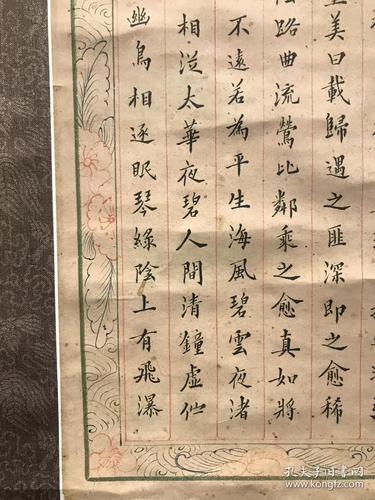 美曰載歸遇之匪深即之愈稀
路曲流鶯比鄰乘之愈真如將
不遠若為平生海風碧雲夜渚
相從太華夜碧人間清鐘虛
幽鳥相逐眠琴綠陰上有飛瀑
孔夫子旧书网